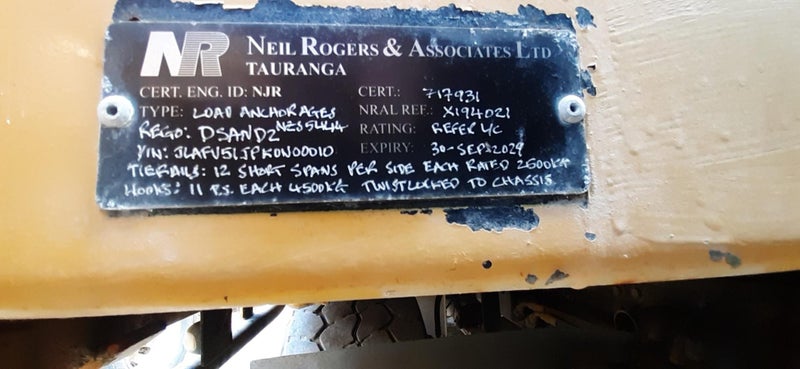 NR NEIL ROGERS & ASSOCIATES LTD
TAURANGA
CERT. ENG. ID: NJR CERT.: 717931
TYPE: LOAD ANCHORAGES NZS5444 NRAL REF.: X194021
REGO: DSAND2 RATING: REFER L/C
VIN: JLAFV51JPK0N00010 EXPIRY: 30-SEP-2029
TIERAILS: 12 SHORT SPANS PER SIDE EACH RATED 2500KG
HOOKS: 11 P.S. EACH 4500KG TWISTLOCKED TO CHASSIS